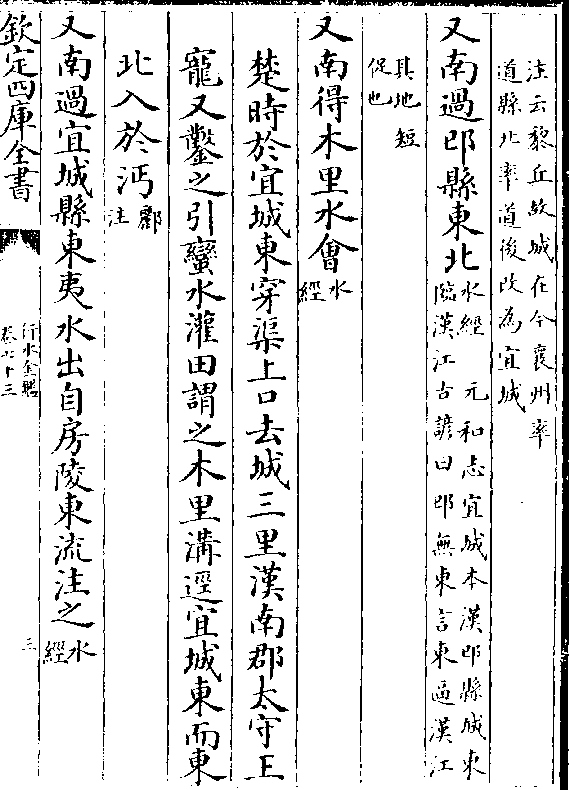 注云黎丘故城在今襄州率
道縣北率道後改為宜城
又南過邔縣東北水經　元和志宜城本漢邔縣城東
臨漢江古諺曰邔無東言東逼漢江
其地短
促也
又南得木里水會水經
楚時於宜城東穿渠上口去城三里漢南郡太守王
寵又鑿之引蠻水灌田謂之木里溝逕宜城東而東
北入於沔酈注
又南過宜城縣東夷水出自房陵東流注之水經
欽定四庫全書
行水金鑑
卷七十三
三